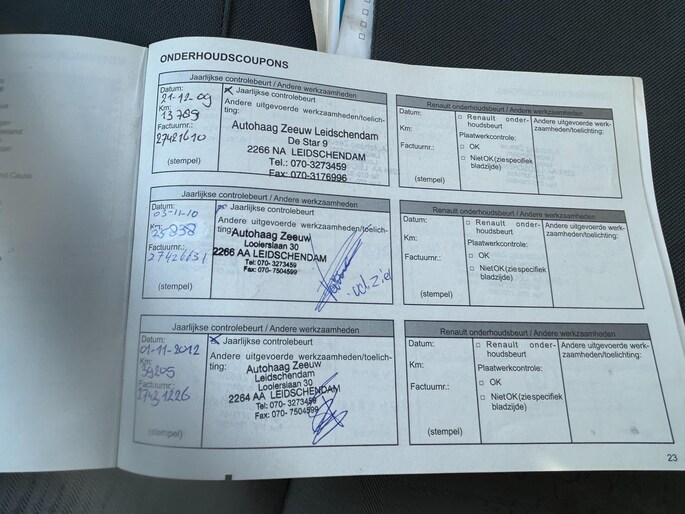 ONDERHOUDSCOUPONS
Jaarlijkse controlebeurt / Andere werkzaamheden
Datum:
21-12-09
Km:
13789
Factuurnr.:
27421610
(stempel)
Jaarlijkse controlebeurt
Andere uitgevoerde werkzaamheden/toelich-
ting:
Autohaag Zeeuw Leidschendam
De Star 9
2266 NA LEIDSCHENDAM
Tel.: 070-3273459
Fax: 070-3176996
Renault onderhoudsbeurt / Andere werkzaamheden
Datum:
Km:
Factuurnr.:
(stempel)
□ Renault onder-
houdsbeurt
Plaatwerkcontrole:
□ OK
□ Niet OK (zie specifiek
bladzijde)
Andere uitgevoerde werk-
zaamheden/toelichting:
Jaarlijkse controlebeurt / Andere werkzaamheden
Datum:
03-11-10
Km:
25838
Factuurnr.:
27426631
(stempel)
Jaarlijkse controlebeurt
Andere uitgevoerde werkzaamheden/toelich-
ting:
Autohaag Zeeuw
Looierslaan 30
2266 AA LEIDSCHENDAM
Tel: 070- 3273459
Fax: 070- 7504599
Renault onderhoudsbeurt / Andere werkzaamheden
Datum:
Km:
Factuurnr.:
(stempel)
□ Renault onder-
houdsbeurt
Plaatwerkcontrole:
□ OK
□ Niet OK (zie specifiek
bladzijde)
Andere uitgevoerde werk-
zaamheden/toelichting:
Jaarlijkse controlebeurt / Andere werkzaamheden
Datum:
01-11-2012
Km:
39205
Factuurnr.:
27421226
(stempel)
Jaarlijkse controlebeurt
Andere uitgevoerde werkzaamheden/toelich-
ting:
Autohaag Zeeuw
Leidschendam
Looierslaan 30
2264 AA LEIDSCHENDAM
Tel: 070- 3273459
Fax: 070- 7504599
Renault onderhoudsbeurt / Andere werkzaamheden
Datum:
Km:
Factuurnr.:
(stempel)
□ Renault onder-
houdsbeurt
Plaatwerkcontrole:
□ OK
□ Niet OK (zie specifiek
bladzijde)
Andere uitgevoerde werk-
zaamheden/toelichting:
23